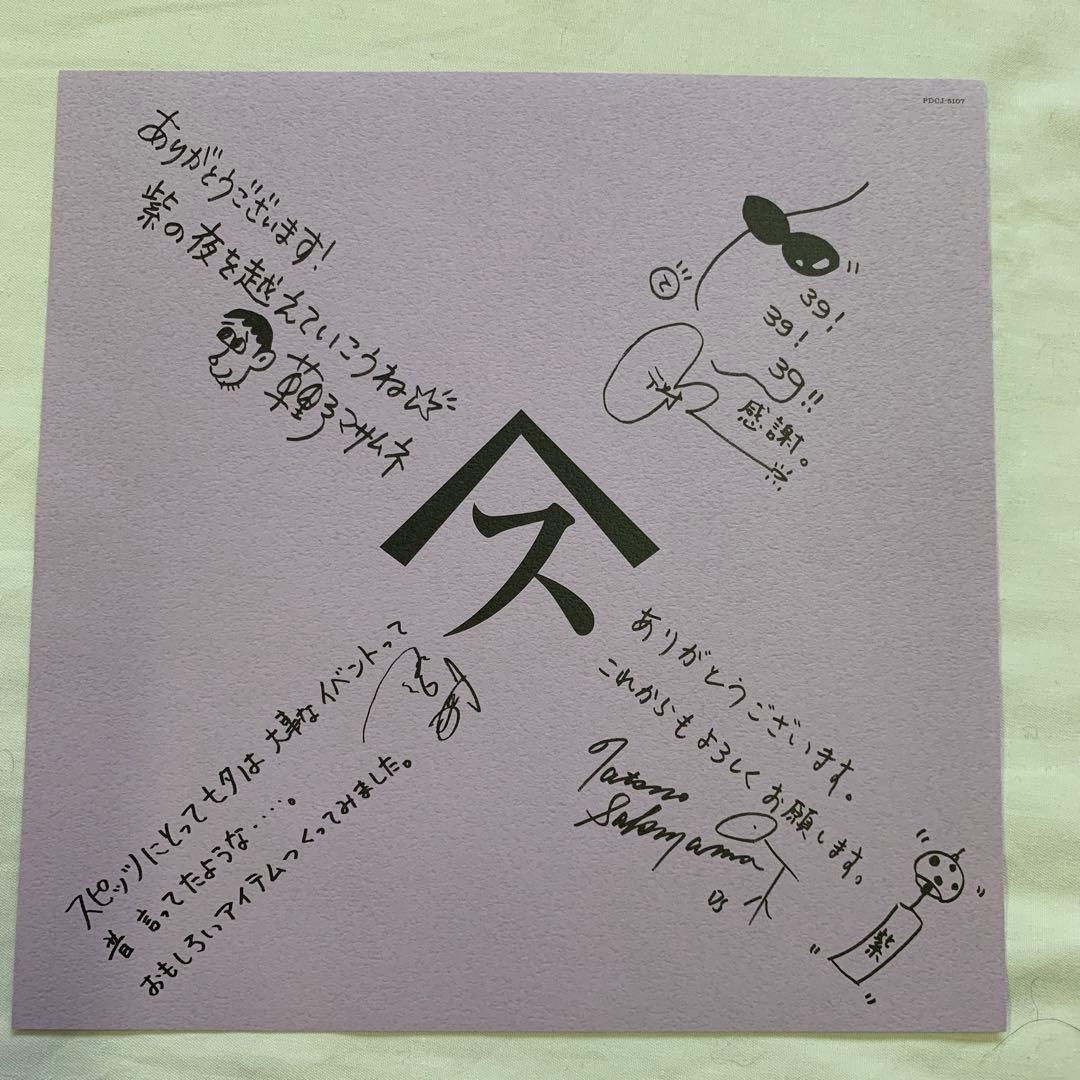 PDCJ-5107
ありがとうございます!
紫の夜を越えていこうね☆
草野マサムネ
て
39!
39!
39!!
テツヤ
感謝。
ス
スピッツにとって七夕は大事なイベントって
昔言ってたような・・・・。
おもしろいアイテムつくってみました。
ありがとうございます。
これからもよろしくお願いします。
Tatsuo
Sakiyama
DS
紫